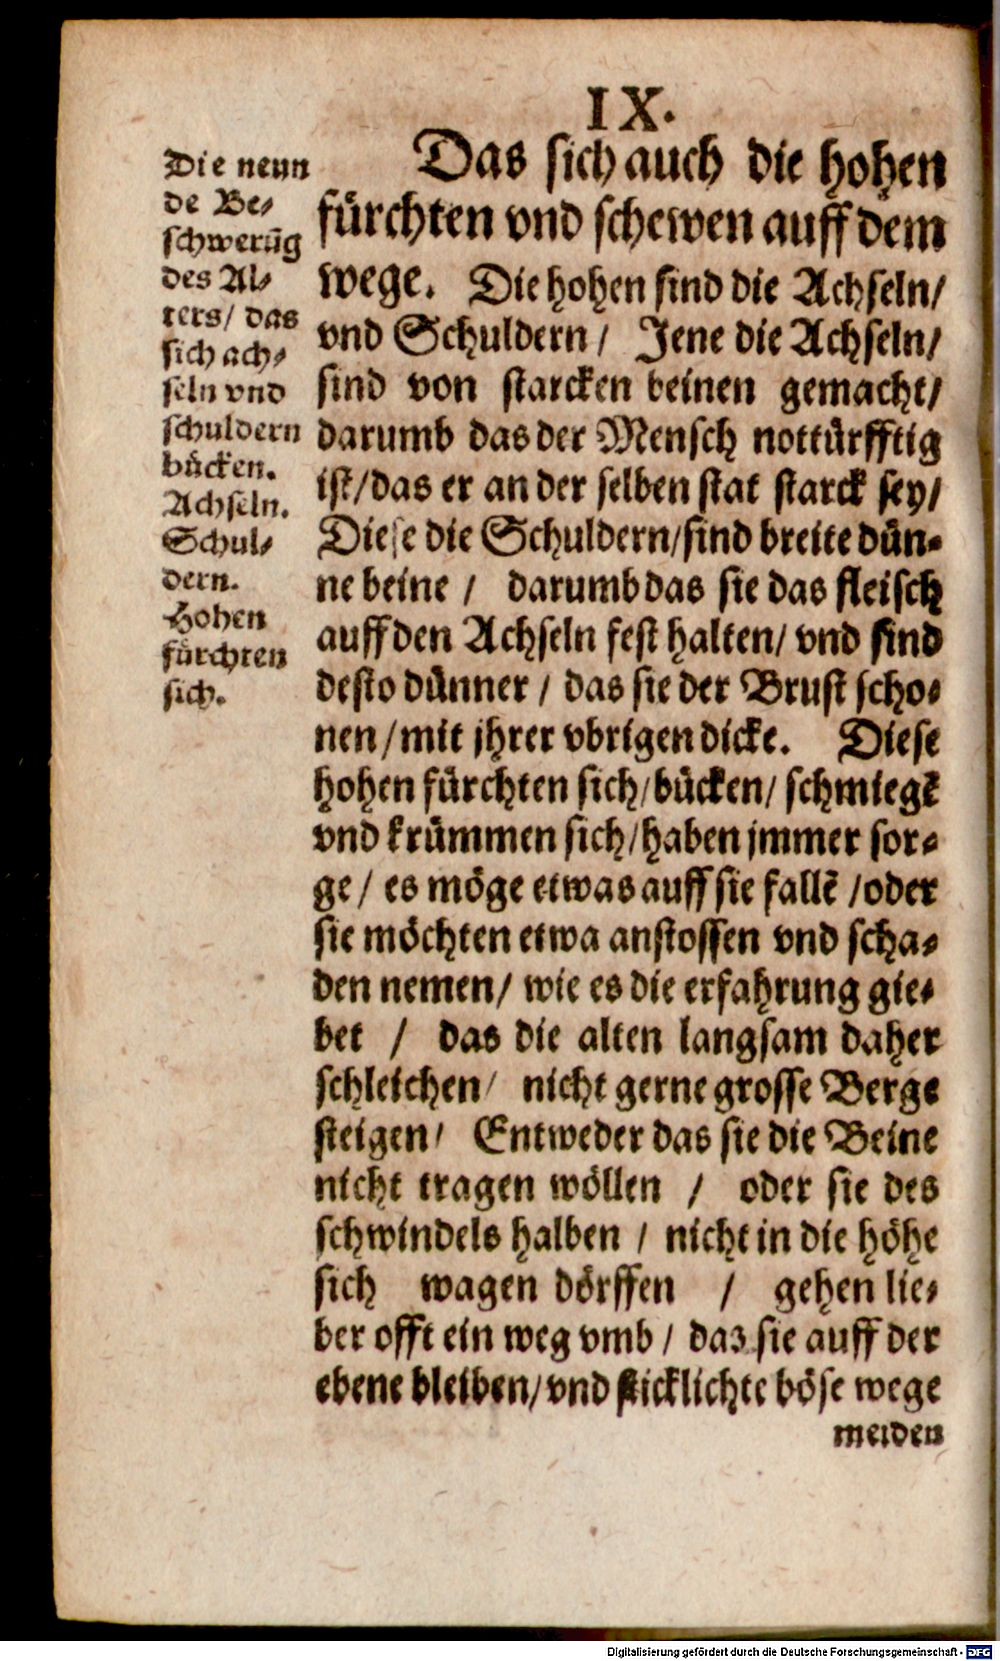 IX.
Die neun
de Be⸗
schwerūg
des Al⸗
ters/ das
sich ach⸗
seln vnd
schuldern
bücken.
Achseln.
Schul⸗
dern.
Hohen
fürchten
sich.
Das sich auch die hohen
fürchten vnd schewen auff dem
wege. Die hohen sind die Achseln/
vnd Schuldern/ Jene die Achseln/
sind von starcken beinen gemacht/
darumb das der Mensch nottürfftig
ist/das er an der selben stat starck sey/
Diese die Schuldern/sind breite dün⸗
ne beine / darumb das sie das fleisch
auff den Achseln fest halten/ vnd sind
desto dünner / das sie der Brust scho⸗
nen/mit jhrer vbrigen dicke. Diese
hohen fürchten sich/bücken/ schmiegē
vnd krümmen sich/haben jmmer sor⸗
ge/ es möge etwas auff sie fallē /oder
sie möchten etwa anstossen vnd scha⸗
den nemen/ wie es die erfahrung gie⸗
bet / das die alten langsam daher
schleichen/ nicht gerne grosse Berge
steigen/ Entweder das sie die Beine
nicht tragen wöllen / oder sie des
schwindels halben / nicht in die höhe
sich wagen dörffen / gehen lie⸗
ber offt ein weg vmb / daz sie auff der
ebene bleiben/vnd sticklichte böse wege
meiden
Digitalisierung gefördert durch die Deutsche Forschungsgemeinschaft - DFG